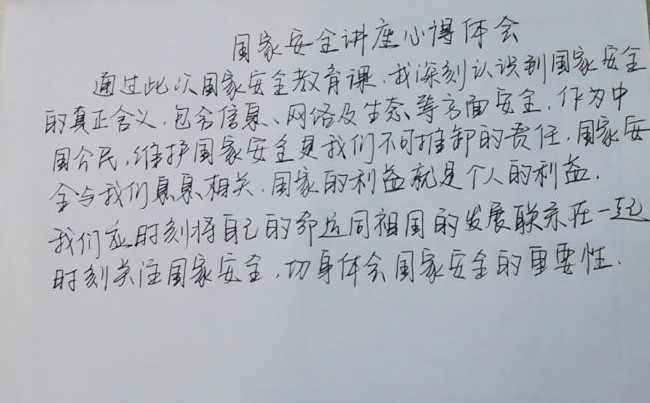 国家安全讲座心得体会
通过此次国家安全教育课,我深刻认识到国家安全
的真正含义,包含信息、网络及生态等方面安全,作为中
国公民,维护国家安全是我们不可推卸的责任,国家安
全与我们息息相关,国家的利益就是个人的利益,
我们应时刻将自己的命运同祖国的发展联系在一起
时刻关注国家安全,切身体会国家安全的重要性.